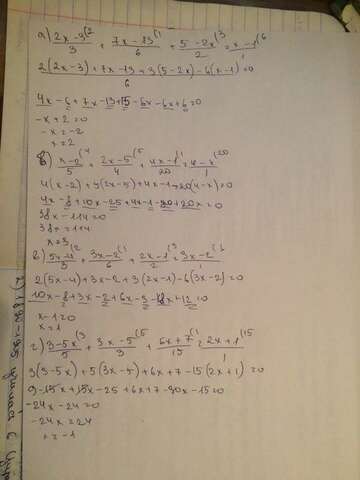 а) 2x-3/3 + 7x-13/6 + 5-2x/2 = x-1/1
2(2x-3)+7x-13+3(5-2x)-6(x-1)=0
6
4x-6+7x-13+15-6x-6x+6=0
-x+2=0
-x=-2
x=2
б) x-2/5 + 2x-5/4 + 4x-1/20 = 4-x/1
4(x-2)+5(2x-5)+4x-1-20(4-x)=0
4x-8+10x-25+4x-1-80+20x=0
38x-114=0
38x=114
x=3
в) 5x-4/3 + 3x-2/6 + 2x-1/2 = 3x-2/1
2(5x-4)+3x-2+3(2x-1)-6(3x-2)=0
10x-8+3x-2+6x-3-18x+12=0
x-1=0
x=1
г) 3-5x/5 + 3x-5/3 + 6x+7/15 = 2x+1/1
3(3-5x)+5(3x-5)+6x+7-15(2x+1)=0
9-15x+15x-25+6x+7-30x-15=0
-24x-24=0
-24x=24
x=-1